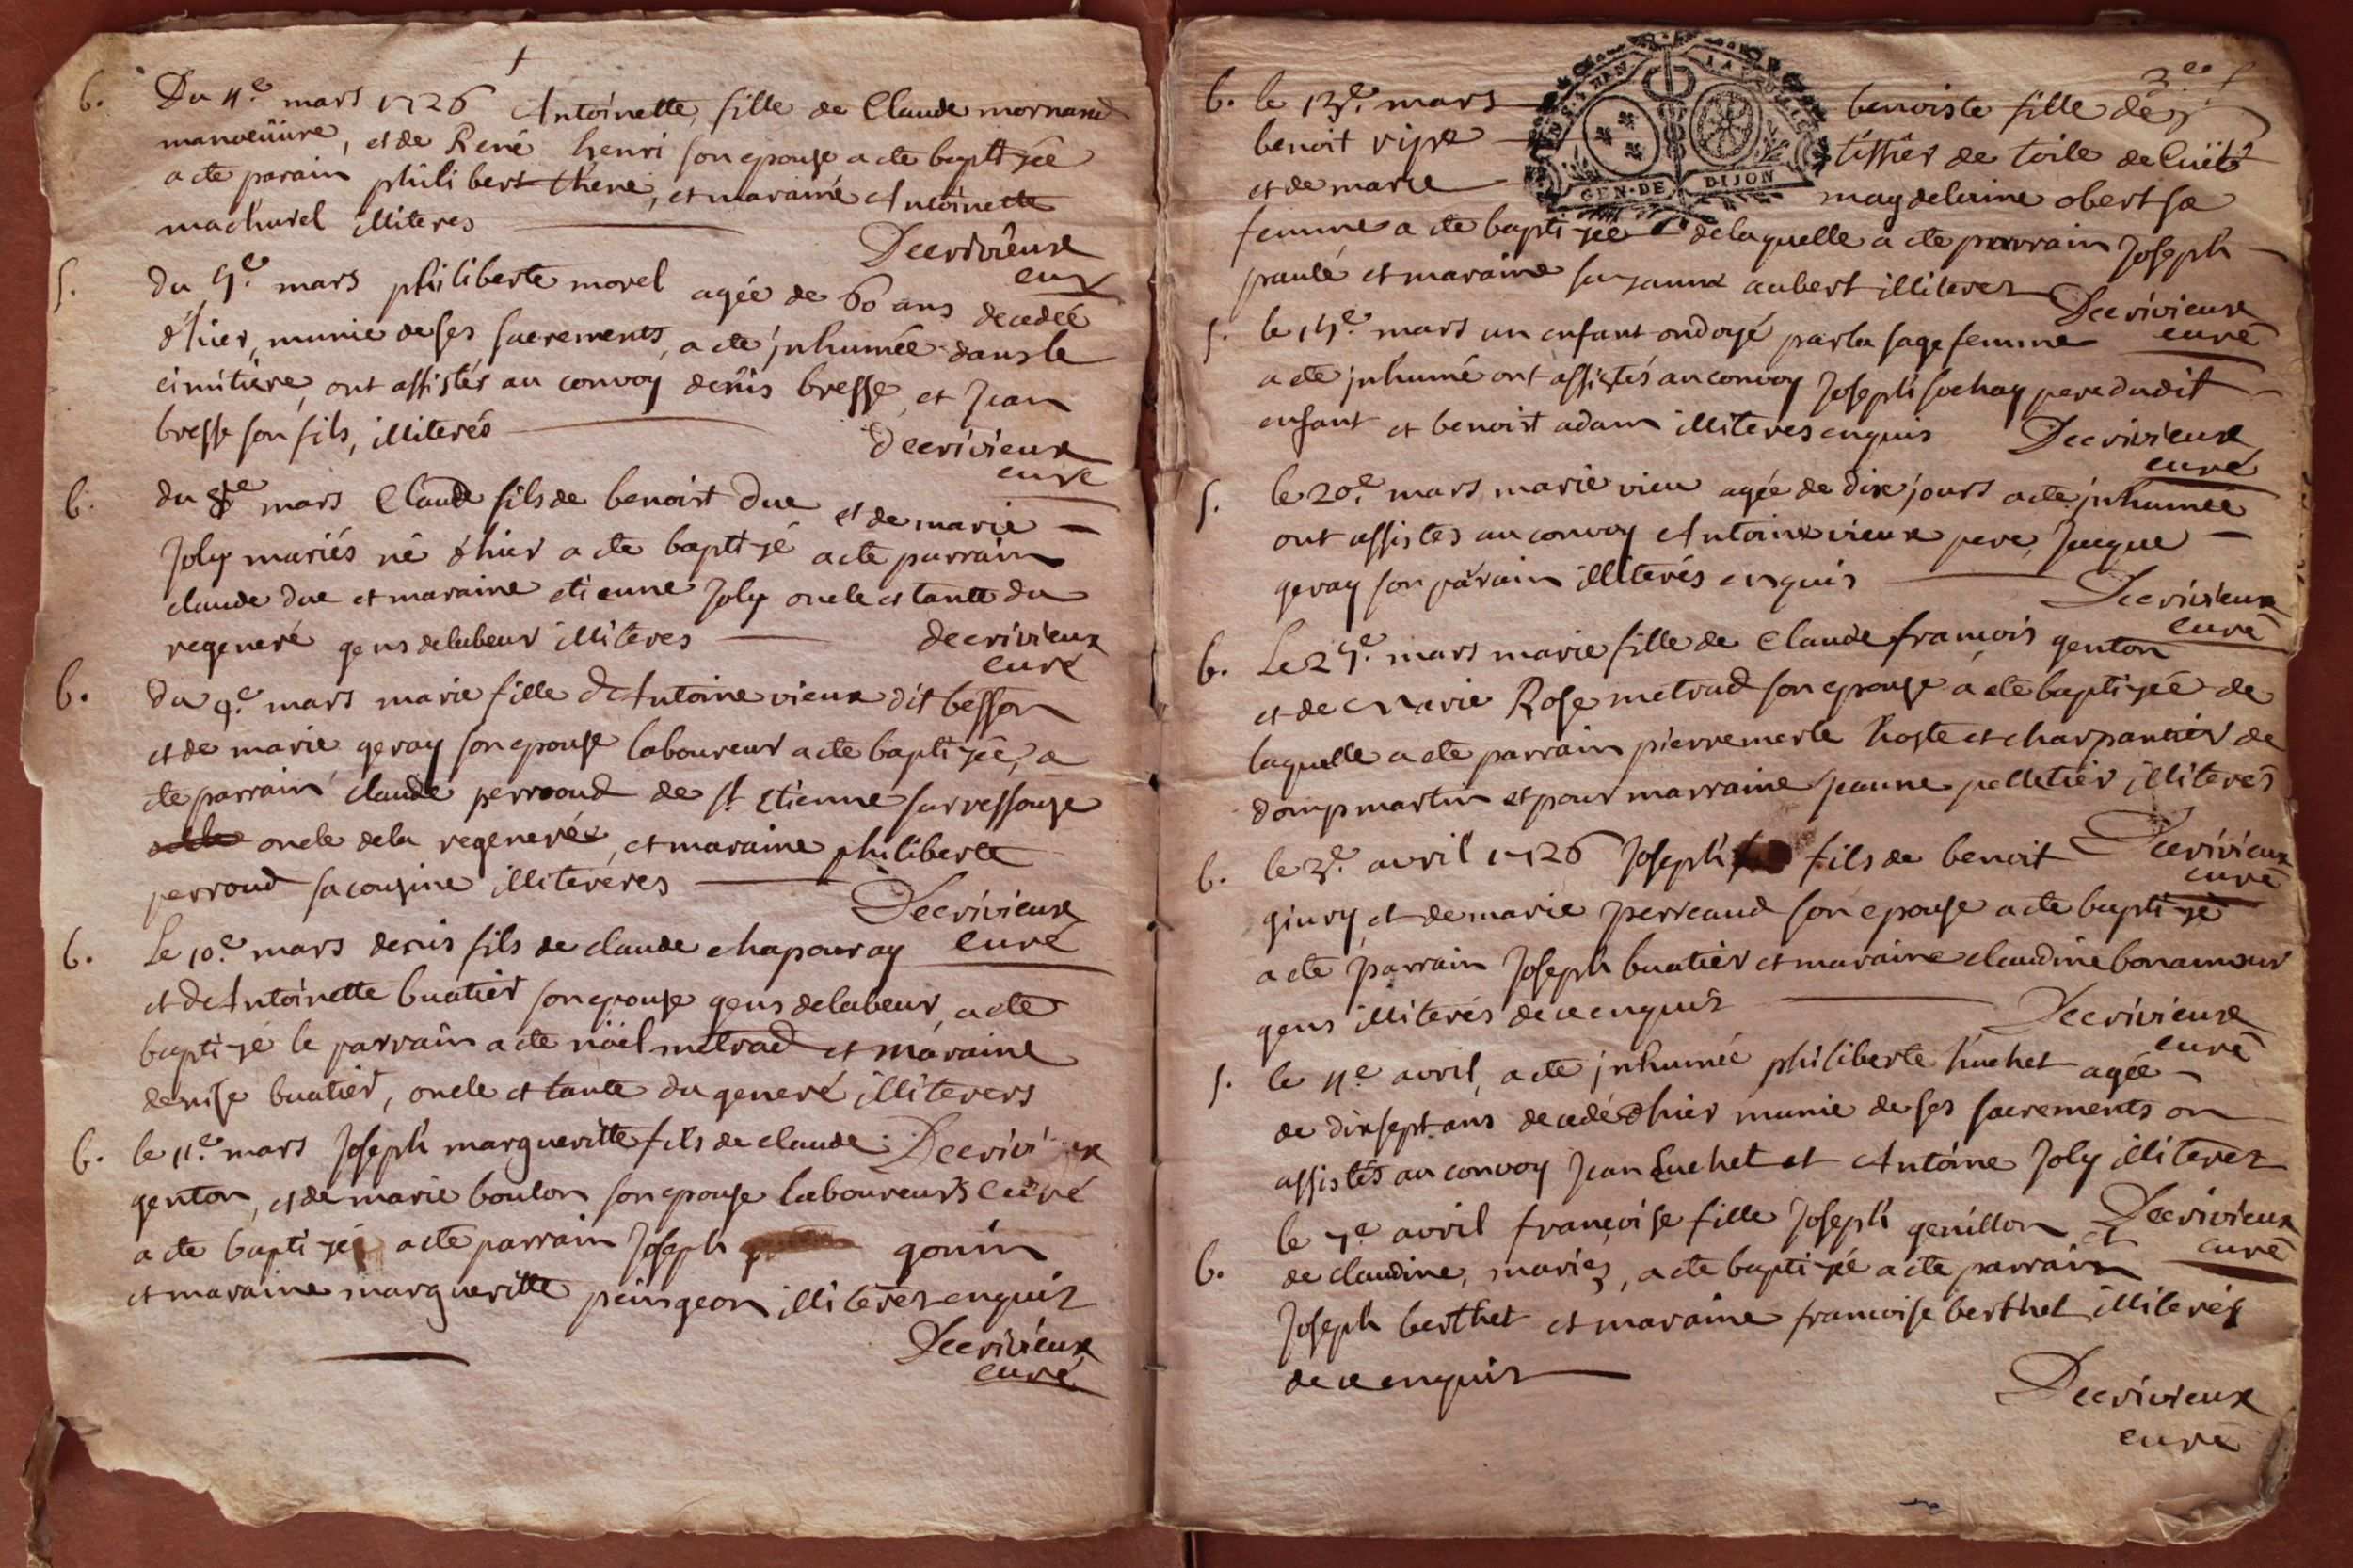 b. Du 4e mars 1726 Antoinette, fille de Claude mornand
manoeüure, et de René henri son epouse a ete baptisée
a ete parain philibert thene, et maraine Antoinette
machurel illiteres
Decrivieux
curé
s. du 5e mars philiberte morel agée de 60 ans decedeé
d'hier, munie de ses sacrements, a eté jnhumée dans le
cimitiere, ont assistés au convoy denis bresse, et Jean
bresse son fils, illiterés
decrivieux
curé
b. du 8e mars Claude fils de benoist Duc et de marie
Joly mariés né d'hier a ete baptisé a ete parrain
claude duc et maraine etienne Joly oncle et tante du
regeneré gens de labeur illiteres
decrivieux
curé
b. du 9e mars marie fille d'Antoine vieux dit besson
et de marie geray son epouse laboureur a ete baptisée, a
ete parrain claude perroud de st Etienne sur ressouze
oncle de la regenerée, et maraine philiberte
perroud sa cousine illitereres
Decrivieux
curé
b. Le 10e mars denis fils de claude chapouray
et d'Antoinette buatier son epouse gens de labeur, a ete
baptisé le parrain a ete nöel metrad et maraine
denise buatier, oncle et tante du generé illiterers
Decrivieux
curé
b. le 11e mars Joseph margueritte fils de claude
genton, et de marie boulon son epouse laboureurs
a ete baptisé a ete parrain Joseph gonin
et maraine margueritte pingeon illiterés enquis
Decrivieux
curé
b. le 13e mars benoiste fille de
benoit rippe tissier de toile de Cuët
et de marie magdelaine obert sa
GEN·DE DIJON
femme a ete baptisée de laquelle a ete parrain Joseph
paule et maraine susanne aubert illiterez
Decrivieux
curé
s. le 15e mars un enfant ondoyé par la sage femme
a ete jnhumé ont assistés au convoy Joseph sochay pere dudit
enfant et benoist adam illiteres enquis
Decrivieux
curé
s. le 20e mars marie vieu agée de dix jours a ete jnhumeé
ont assistes au convoy Antoine vieux pere, Jacque
geray son parain illiterés enquis
Decrivieux
curé
b. Le 25e mars marie fille de Claude françois genton
et de Marie Rose metrad son epouse a ete baptisée de
laquelle a ete parrain pierre merle hoste et charpantier de
dompmartin et pour marraine jeanne pelletier illiterés
Decrivieux
curé
b. le 3e avril 1726 Joseph fils de benoit
givry et de marie perreaud son epouse a ete baptisé
a ete parrain Joseph buatier et maraine claudine bonamour
gens illiterés de ce enquis
Decrivieux
curé
s. le 4e avril, a ete jnhumée philiberte huchet agée
de dix sept ans decedé d'hier munie de ses sacrements on
assistés au convoy Jean huchet et Antoine Joly illiterez
Decrivieux
curé
b. le 7e avril françoise fille Joseph genillon et
de claudine, mariez, a ete baptisé a ete parrain
Joseph berthet et maraine francoise berthet illiterés
de ce enquis
Decrivieux
curé